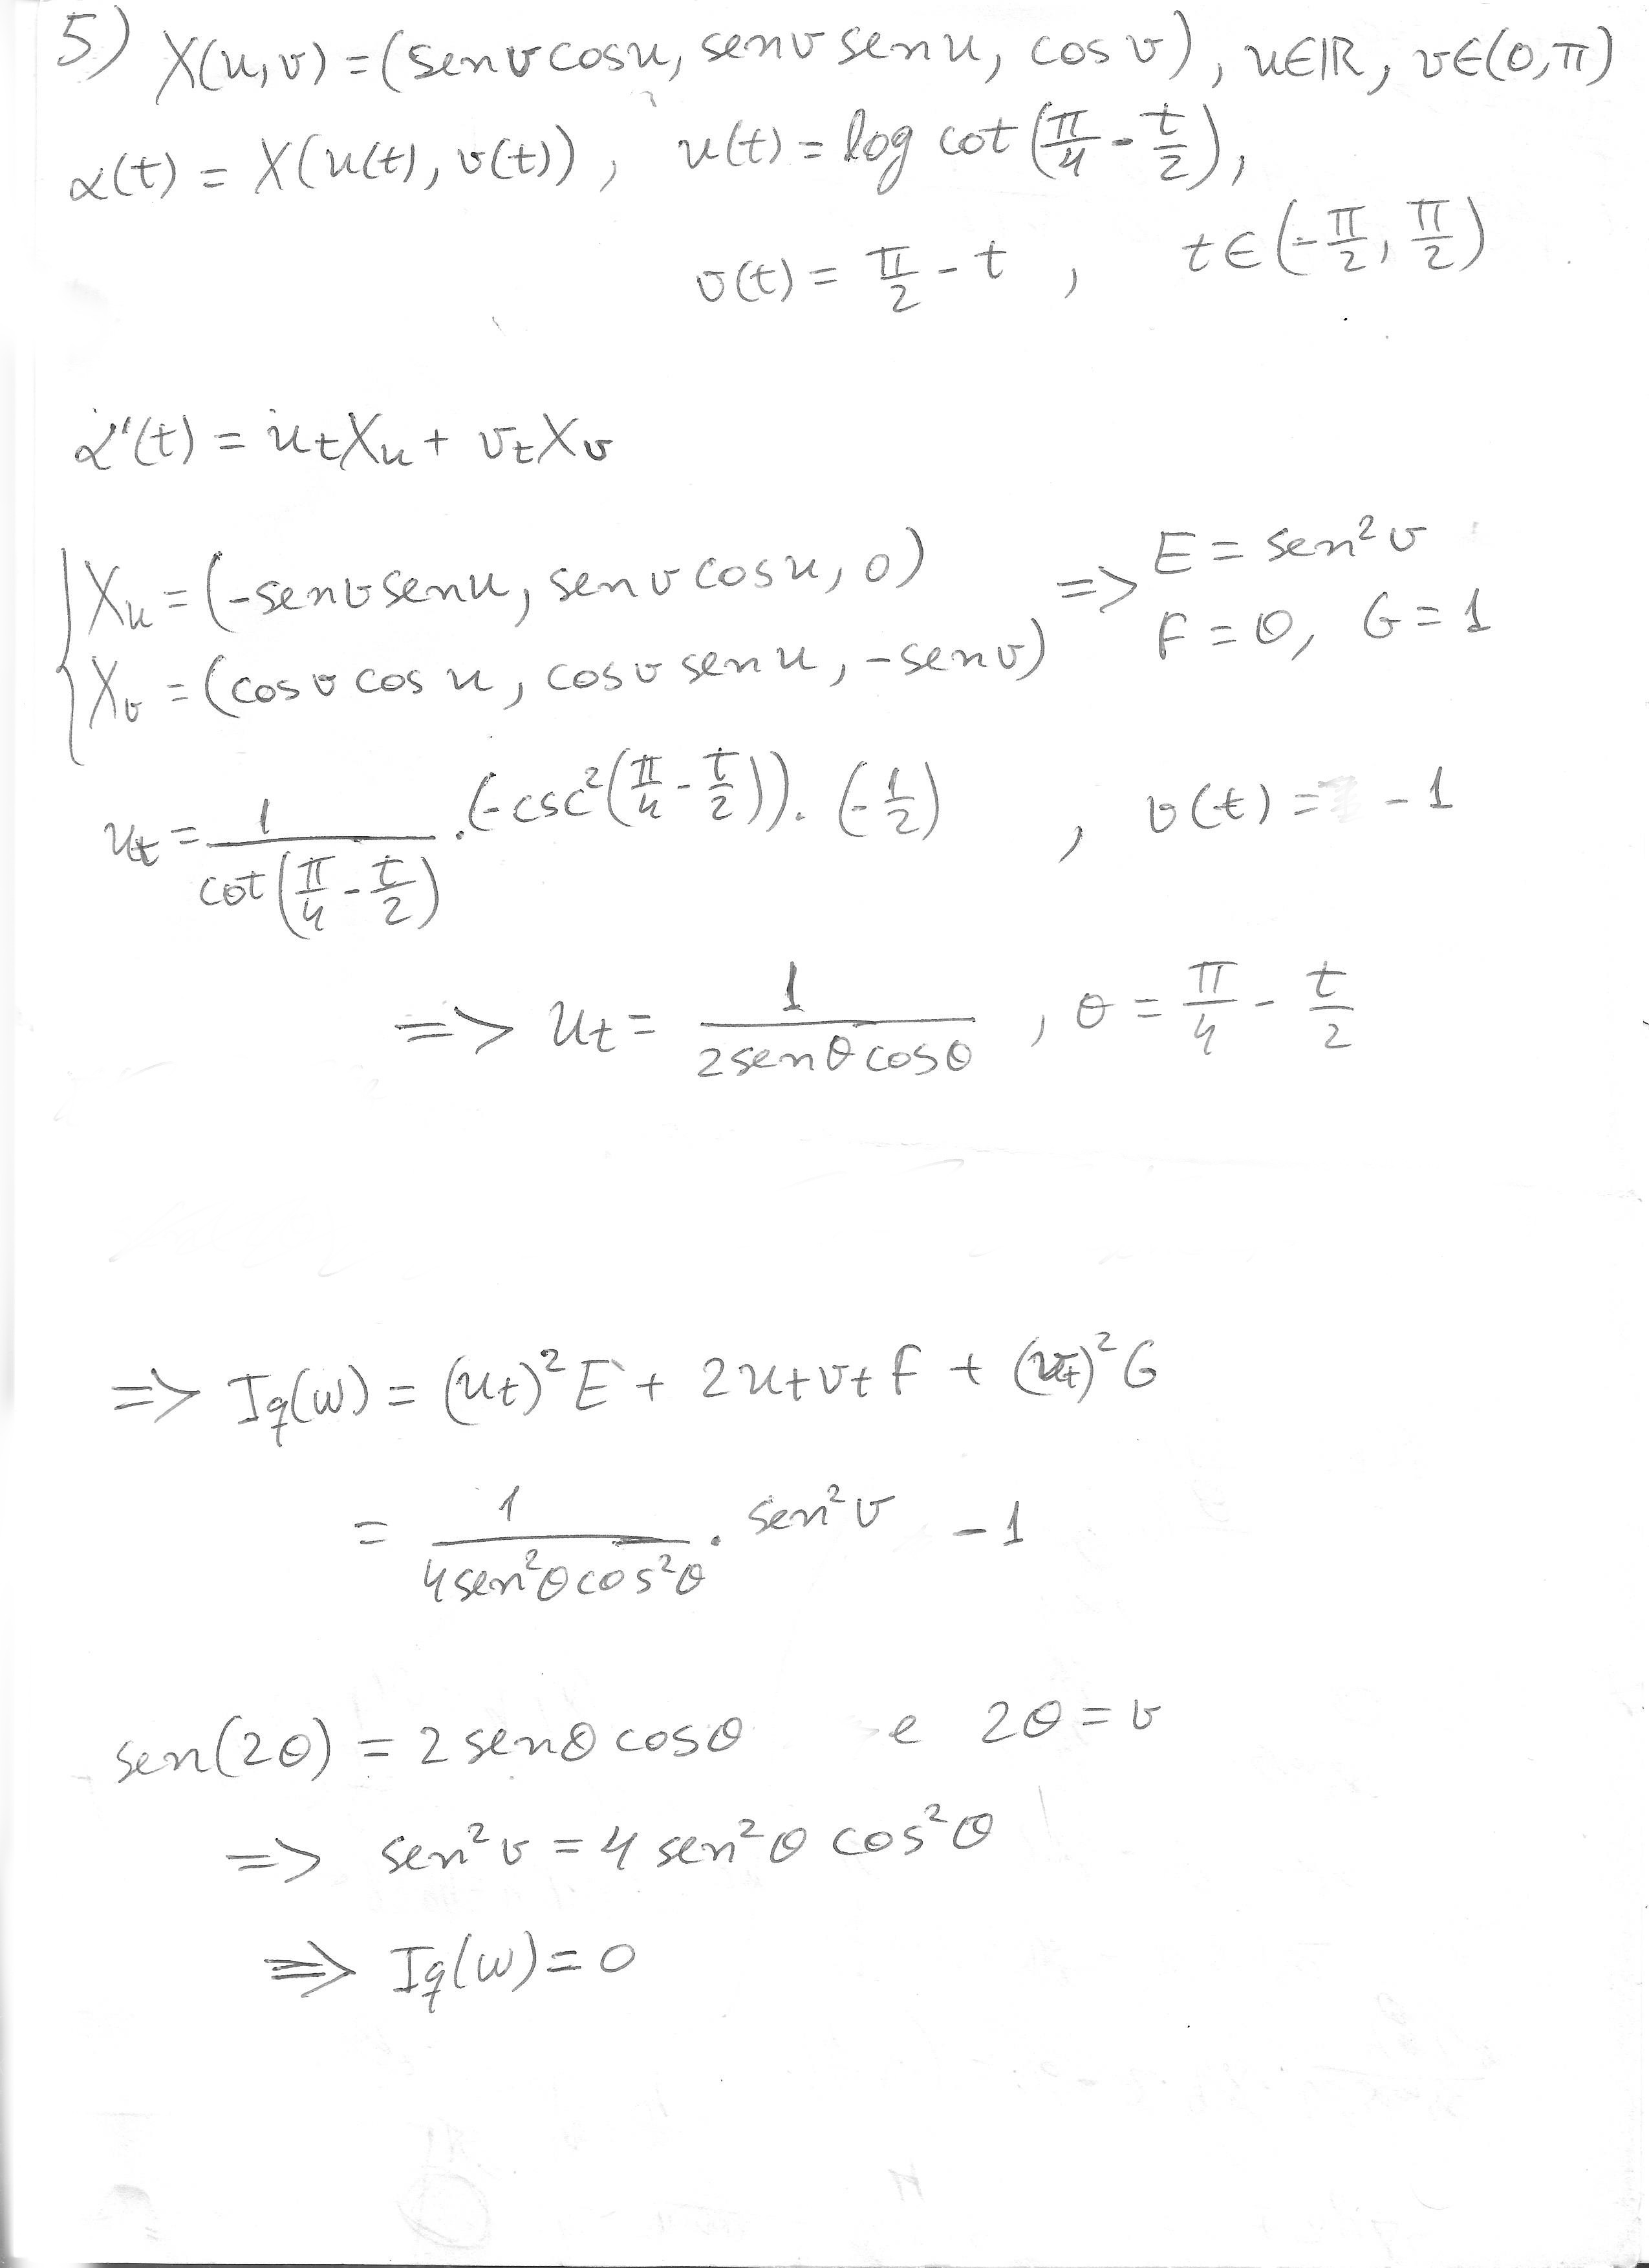 5) X(u,v) = (senv cosu, senv senu, cos v), u∈ℝ, v∈(0,π)
α(t) = X(u(t), v(t)), u(t) = log cot(π/4 - t/2),
v(t) = π/2 - t, t∈(-π/2, π/2)
α'(t) = utXu + vtXv
{ Xu = (-senv senu, senv cosu, 0) => E = sen²v
{ Xv = (cosv cos u, cosv senu, -senv) F = 0, G = 1
ut = 1/cot(π/4 - t/2) · (-csc²(π/4 - t/2)) · (-1/2), v(t) = -1
=> ut = 1/(2senθ cosθ), θ = π/4 - t/2
=> Iq(w) = (ut)²E + 2utvtF + (vt)²G
= 1/(4sen²θcos²θ) · sen²v - 1
sen(2θ) = 2senθ cosθ e 2θ = v
=> sen²v = 4 sen²θ cos²θ
=> Iq(w) = 0